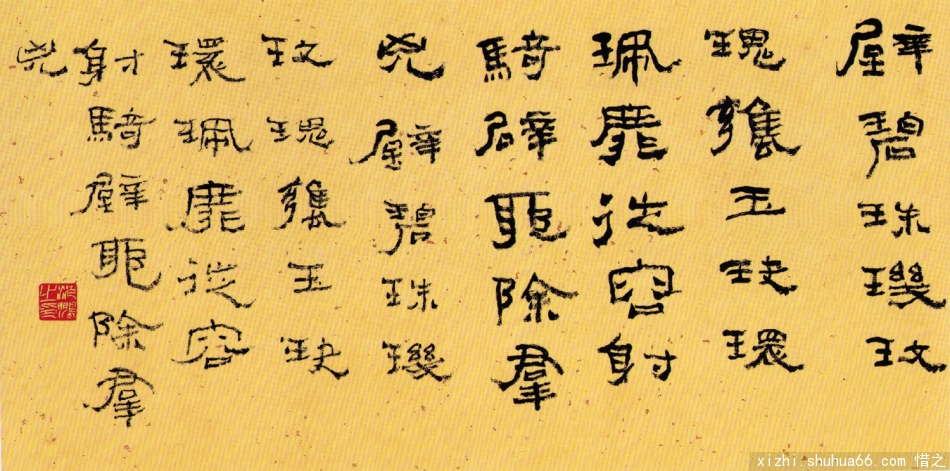 璧碧珠璣玫
瑰甕玉玦環
珮靡從容射
騎辟耶除羣
兇璧碧珠璣
玫瑰甕玉玦
環珮靡從容
射騎辟耶除羣
兇
xizhi.shuhua66.com 惜之